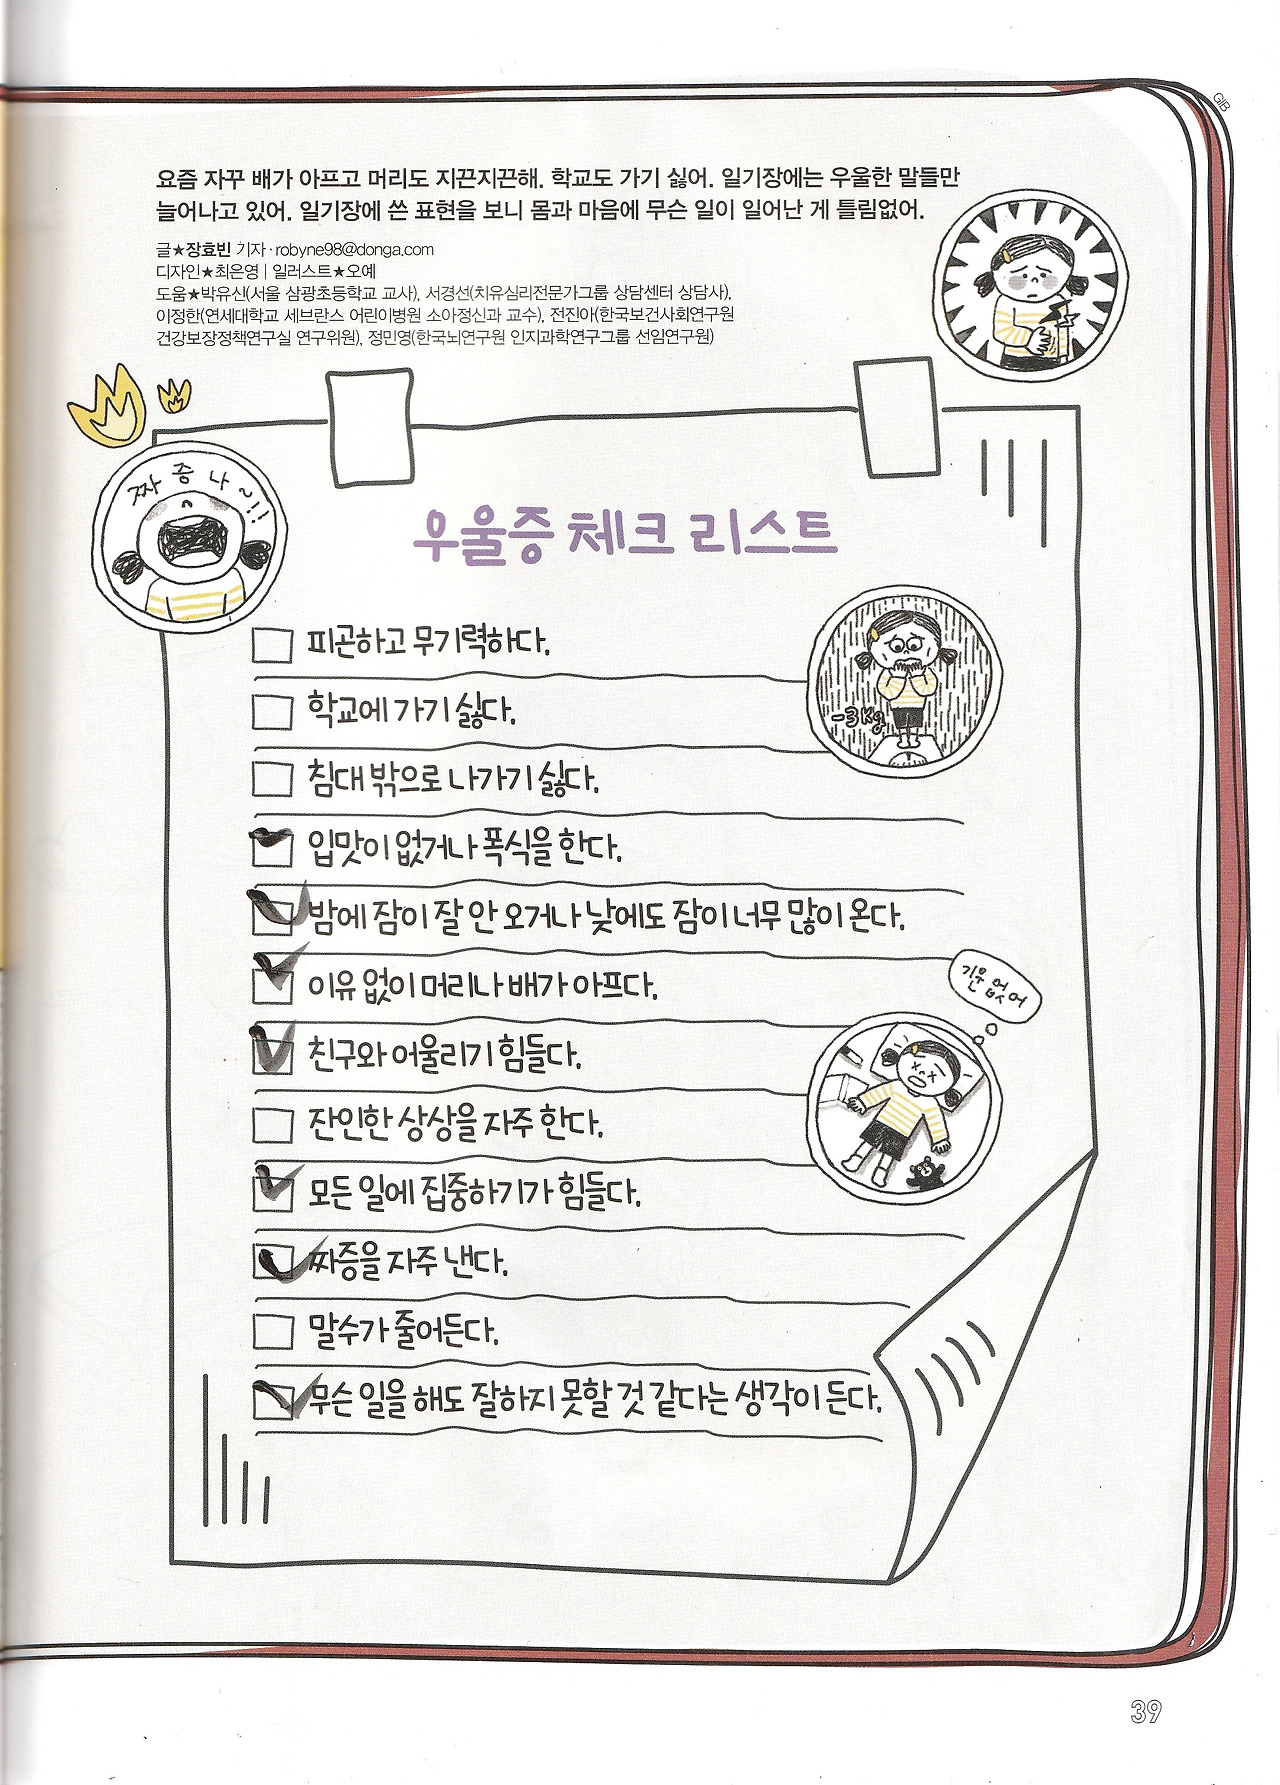 GIB
요즘 자꾸 배가 아프고 머리도 지끈지끈해. 학교도 가기 싫어. 일기장에는 우울한 말들만
늘어나고 있어. 일기장에 쓴 표현을 보니 몸과 마음에 무슨 일이 일어난 게 틀림없어.
글★장효빈 기자·robyne98@donga.com
디자인★최은영 | 일러스트★오예
도움★박유신(서울 삼광초등학교 교사), 서경선(치유심리전문가그룹 상담센터 상담사),
이정한(연세대학교 세브란스 어린이병원 소아정신과 교수), 전진아(한국보건사회연구원
건강보장정책연구실 연구위원), 정민영(한국뇌연구원 인지과학연구그룹 선임연구원)
짜증나~!!
우울증 체크 리스트
피곤하고 무기력하다.
학교에 가기 싫다.
-3kg
침대 밖으로 나가기 싫다.
입맛이 없거나 폭식을 한다.
밤에 잠이 잘 안 오거나 낮에도 잠이 너무 많이 온다.
이유 없이 머리나 배가 아프다.
기운 없어
친구와 어울리기 힘들다.
잔인한 상상을 자주 한다.
모든 일에 집중하기가 힘들다.
짜증을 자주 낸다.
말수가 줄어든다.
무슨 일을 해도 잘하지 못할 것 같다는 생각이 든다.
39